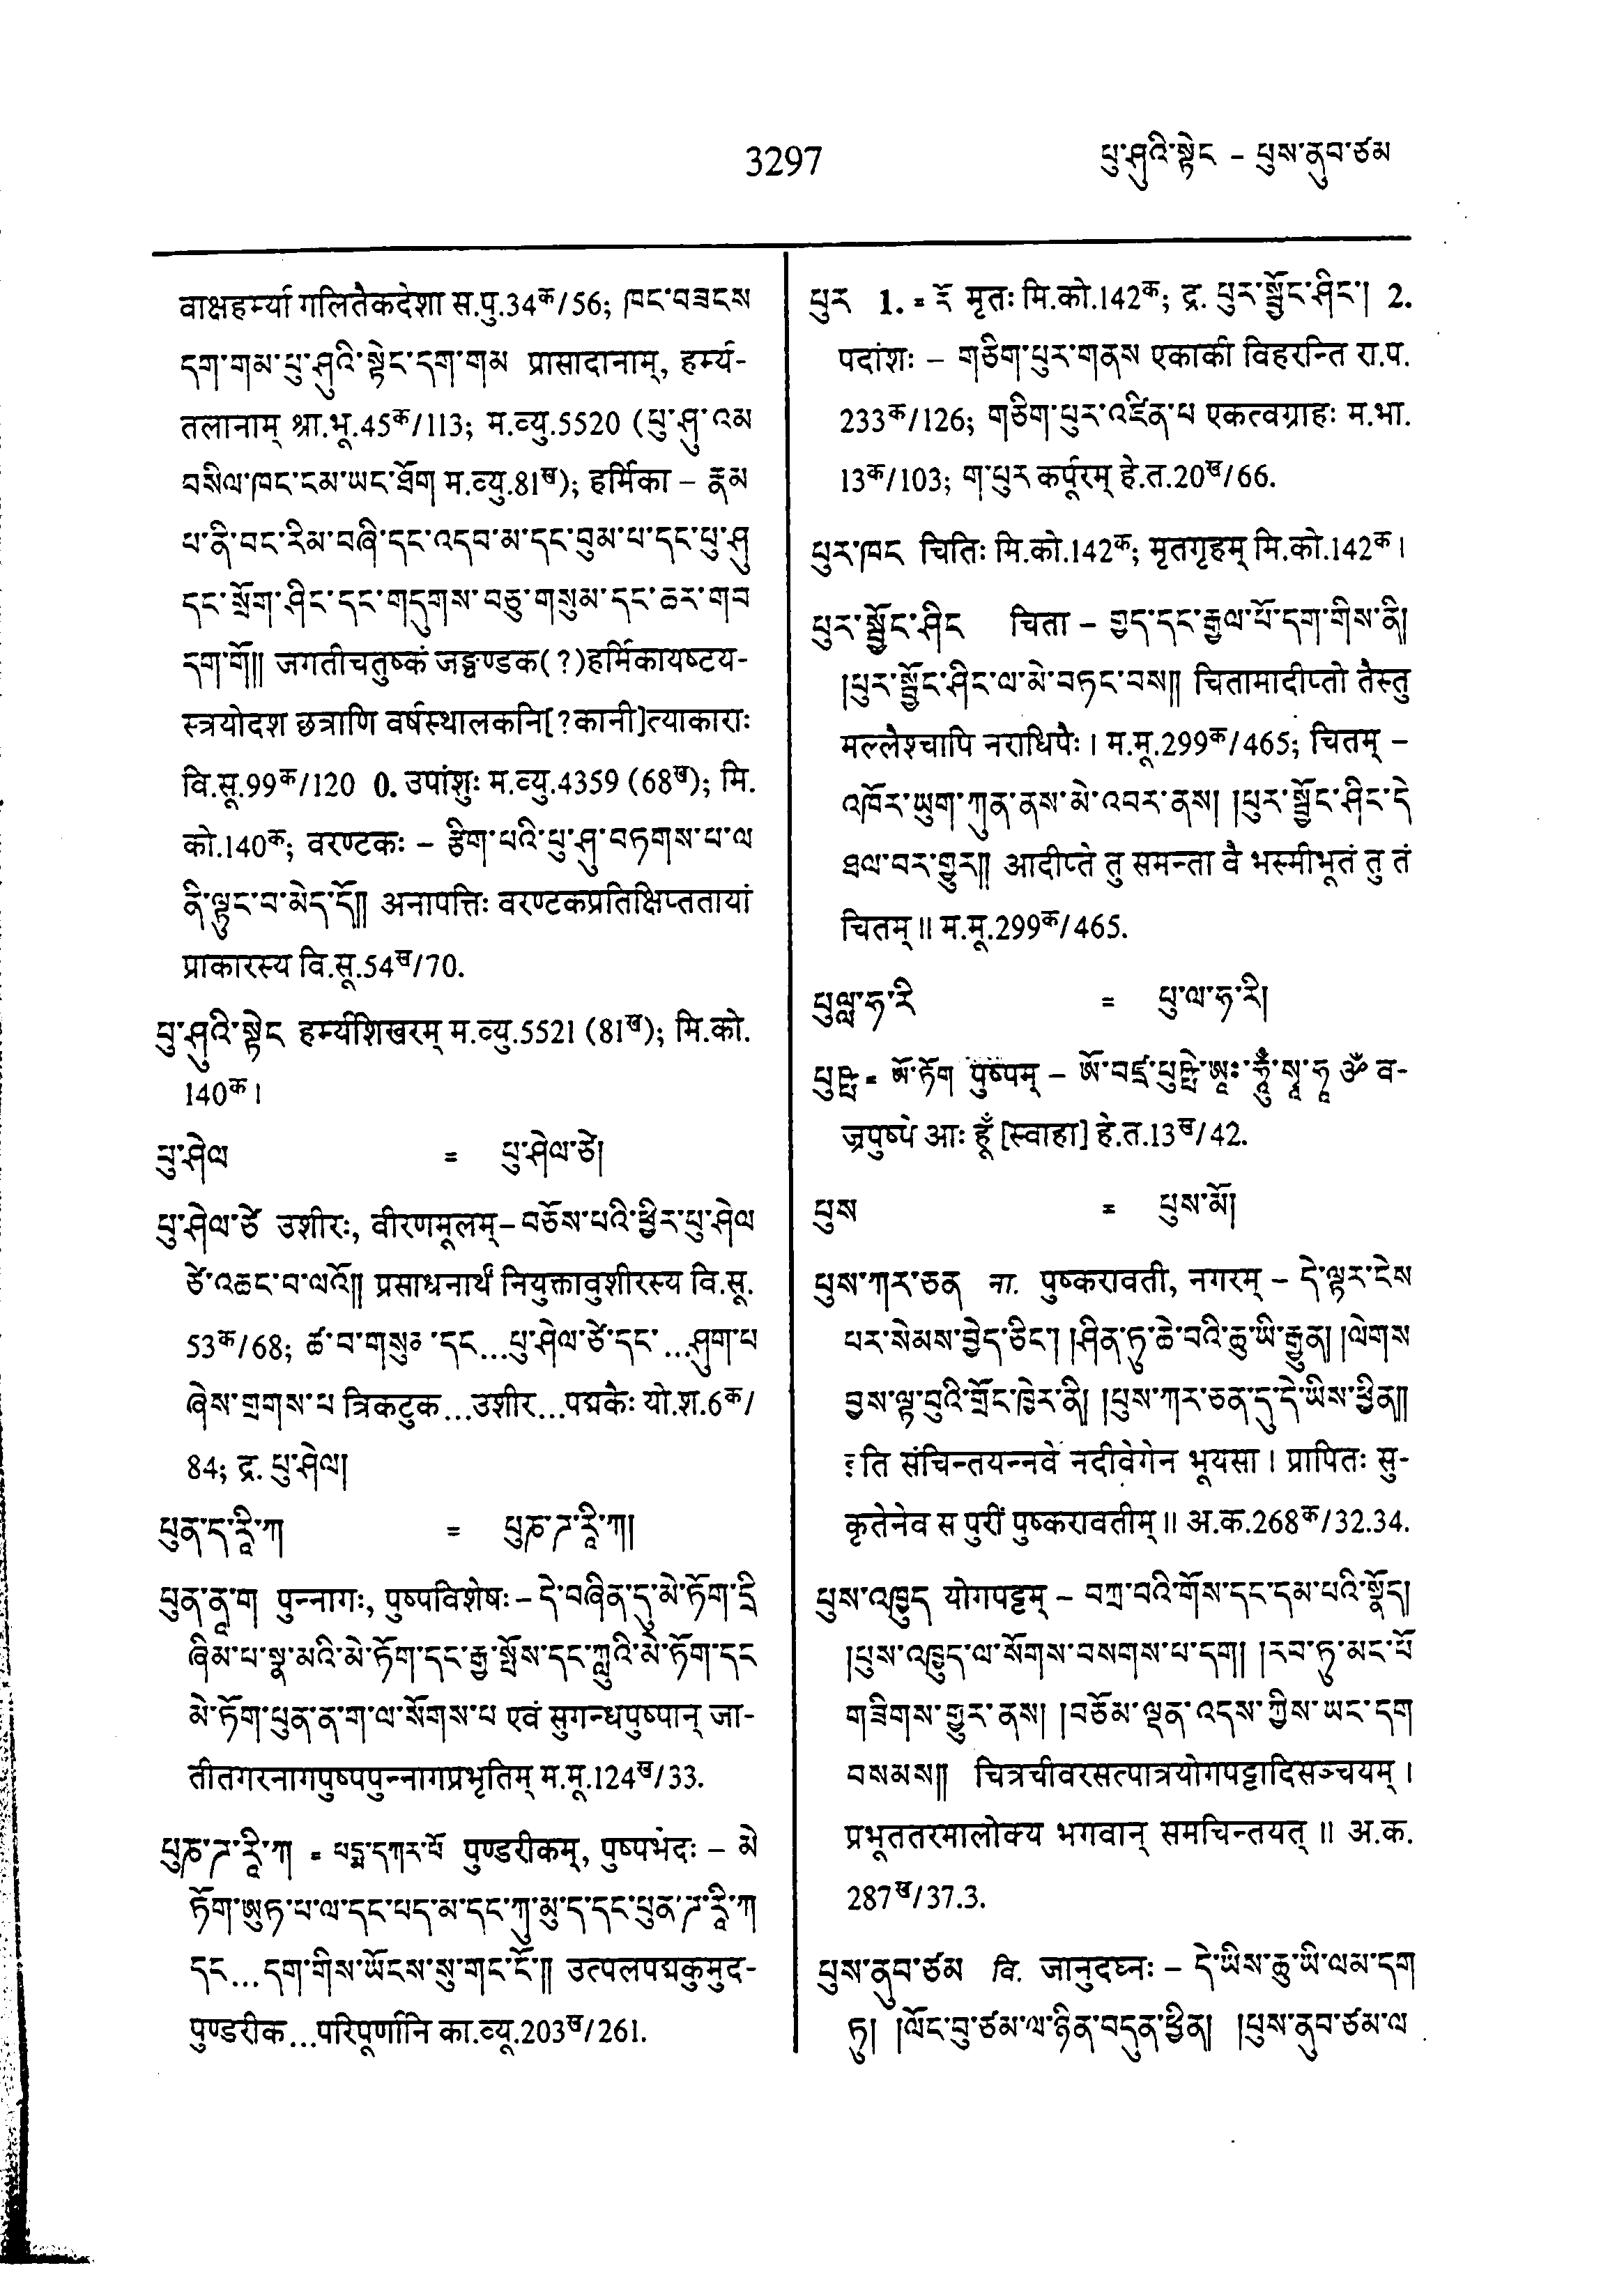 3297
པུ་ཤུའི་སྟེང – པུས་ནུབ་ཙམ
वाक्षहर्म्या गलितैकदेशा स.पु.34क/56; ཁང་བཟངས
དག་གམ་པུ་ཤུའི་སྟེང་དག་གམ प्रासादानाम्, हर्म्य-
तलानाम् श्रा.भू.45क/113; म.व्यु.5520 (པུ་ཤུ་འམ
བསིལ་ཁང་ངམ་ཡང་ཐོག म.व्यु.81ख); हर्मिका – རྣམ
པ་ནི་བང་རིམ་བཞི་དང་འདབ་མ་དང་བུམ་པ་དང་པུ་ཤུ
དང་སྲོག་ཤིང་དང་གདུགས་བཅུ་གསུམ་དང་ཆར་གབ
དག་གོ།། जगतीचतुष्कं जङ्घण्डक(?)हर्मिकायष्टय-
स्त्रयोदश छत्राणि वर्षस्थालकनि[?कानी]त्याकाराः
वि.सू.99क/120 0. उपांशुः म.व्यु.4359 (68ख); मि.
को.140क; वरण्टकः – རྩིག་པའི་པུ་ཤུ་བཏགས་པ་ལ
ནི་ལྟུང་བ་མེད་དོ།། अनापत्तिः वरण्टकप्रतिक्षिप्ततायां
प्राकारस्य वि.सू.54ख/70.
པུ་ཤུའི་སྟེང हर्म्यशिखरम् म.व्यु.5521 (81ख); मि.को.
140क।
པུ་ཤེལ = པུ་ཤེལ་ཙེ།
པུ་ཤེལ་ཙེ उशीरः, वीरणमूलम्– བཅོས་པའི་ཕྱིར་པུ་ཤེལ
ཙེ་འཆང་བ་ལའོ།། प्रसाधनार्थं नियुक्तावुशीरस्य वि.सू.
53क/68; ཚ་བ་གསུམ་དང...པུ་ཤེལ་ཙེ་དང་...ཤུག་པ
ཞེས་གྲགས་པ त्रिकटुक...उशीर...पद्मकैः यो.श.6क/
84; द्र. པུ་ཤེལ།
པུན་ད་རཱི་ཀ = པུཎ་ཌ་རཱི་ཀ།
པུན་ནཱ་ག पुन्नागः, पुष्पविशेषः – དེ་བཞིན་དུ་མེ་ཏོག་དྲི
ཞིམ་པ་སྣ་མའི་མེ་ཏོག་དང་རྒྱ་སྤོས་དང་ཀླུའི་མེ་ཏོག་དང
མེ་ཏོག་པུན་ན་ག་ལ་སོགས་པ एवं सुगन्धपुष्पान् जा-
तीतगरनागपुष्पपुन्नागप्रभृतिम् म.मू.124ख/33.
པུཎ་ཌ་རཱི་ཀ = པདྨ་དཀར་པོ पुण्डरीकम्, पुष्पभेदः – མེ
ཏོག་ཨུཏ་པ་ལ་དང་པད་མ་དང་ཀུ་མུ་ད་དང་པུན་ཌ་རཱི་ཀ
དང...དག་གིས་ཡོངས་སུ་གང་ངོ་།། उत्पलपद्मकुमुद-
पुण्डरीक...परिपूर्णानि का.व्यू.203ख/261.
པུར 1. = རོ मृतः मि.को.142क; द्र. པུར་སྦྱོང་ཤིང་། 2.
पदांशः – གཅིག་པུར་གནས एकाकी विहरन्ति रा.प.
233क/126; གཅིག་པུར་འཛིན་པ एकत्वग्राहः म.भा.
13क/103; ག་པུར कर्पूरम् हे.त.20ख/66.
པུར་ཁང चितिः मि.को.142क; मृतगृहम् मि.को.142क।
པུར་སྦྱོང་ཤིང चिता – གྱད་དང་རྒྱལ་པོ་དག་གིས་ནི།
།པུར་སྦྱོང་ཤིང་ལ་མེ་བཏང་བས།། चितामादीप्तो तैस्तु
मल्लैश्चापि नराधिपैः। म.मू.299क/465; चितम् –
འཁོར་ཡུག་ཀུན་ནས་མེ་འབར་ནས། །པུར་སྦྱོང་ཤིང་དེ
ཐལ་བར་གྱུར།། आदीप्ते तु समन्ता वै भस्मीभूतं तु तं
चितम्॥ म.मू.299क/465.
པུལླ་ཧ་རི = པུ་ལ་ཧ་རི།
པུཥྤ = མེ་ཏོག पुष्पम् – ཨོཾ་བཛྲ་པུཥྤེ་ཨཱཿ་ཧཱུྃ་སྭཱ་ཧཱ ॐ व-
ज्रपुष्पे आः हूँ [स्वाहा] हे.त.13ख/42.
པུས = པུས་མོ།
པུས་ཀར་ཅན ना. पुष्करावती, नगरम् – དེ་ལྟར་ངེས
པར་སེམས་བྱེད་ཅིང་། །ཤིན་ཏུ་ཆེ་བའི་ཆུ་ཡི་རྒྱུན། །ལེགས
བྱས་ལྟ་བུའི་གྲོང་ཁྱེར་ནི། །པུས་ཀར་ཅན་དུ་དེ་ཡིས་ཕྱིན།།
इति संचिन्तयन्नवे नदीवेगेन भूयसा। प्रापितः सु-
कृतेनेव स पुरीं पुष्करावतीम्॥ अ.क.268क/32.34.
པུས་འཁྱུད योगपट्टम् – བཀྲ་བའི་གོས་དང་དམ་པའི་སྣོད།
།པུས་འཁྱུད་ལ་སོགས་བསགས་པ་དག། །རབ་ཏུ་མང་པོ
གཟིགས་གྱུར་ནས། །བཅོམ་ལྡན་འདས་ཀྱིས་ཡང་དག
བསམས།། चित्रचीवरसत्पात्रयोगपट्टादिसञ्चयम्।
प्रभूततरमालोक्य भगवान् समचिन्तयत्॥ अ.क.
287ख/37.3.
པུས་ནུབ་ཙམ वि. जानुदघ्नः – དེ་ཡིས་ཆུ་ཡི་ལམ་དག
ཏུ། །ལོང་བུ་ཙམ་ལ་ཉིན་བདུན་ཕྱིན། །པུས་ནུབ་ཙམ་ལ